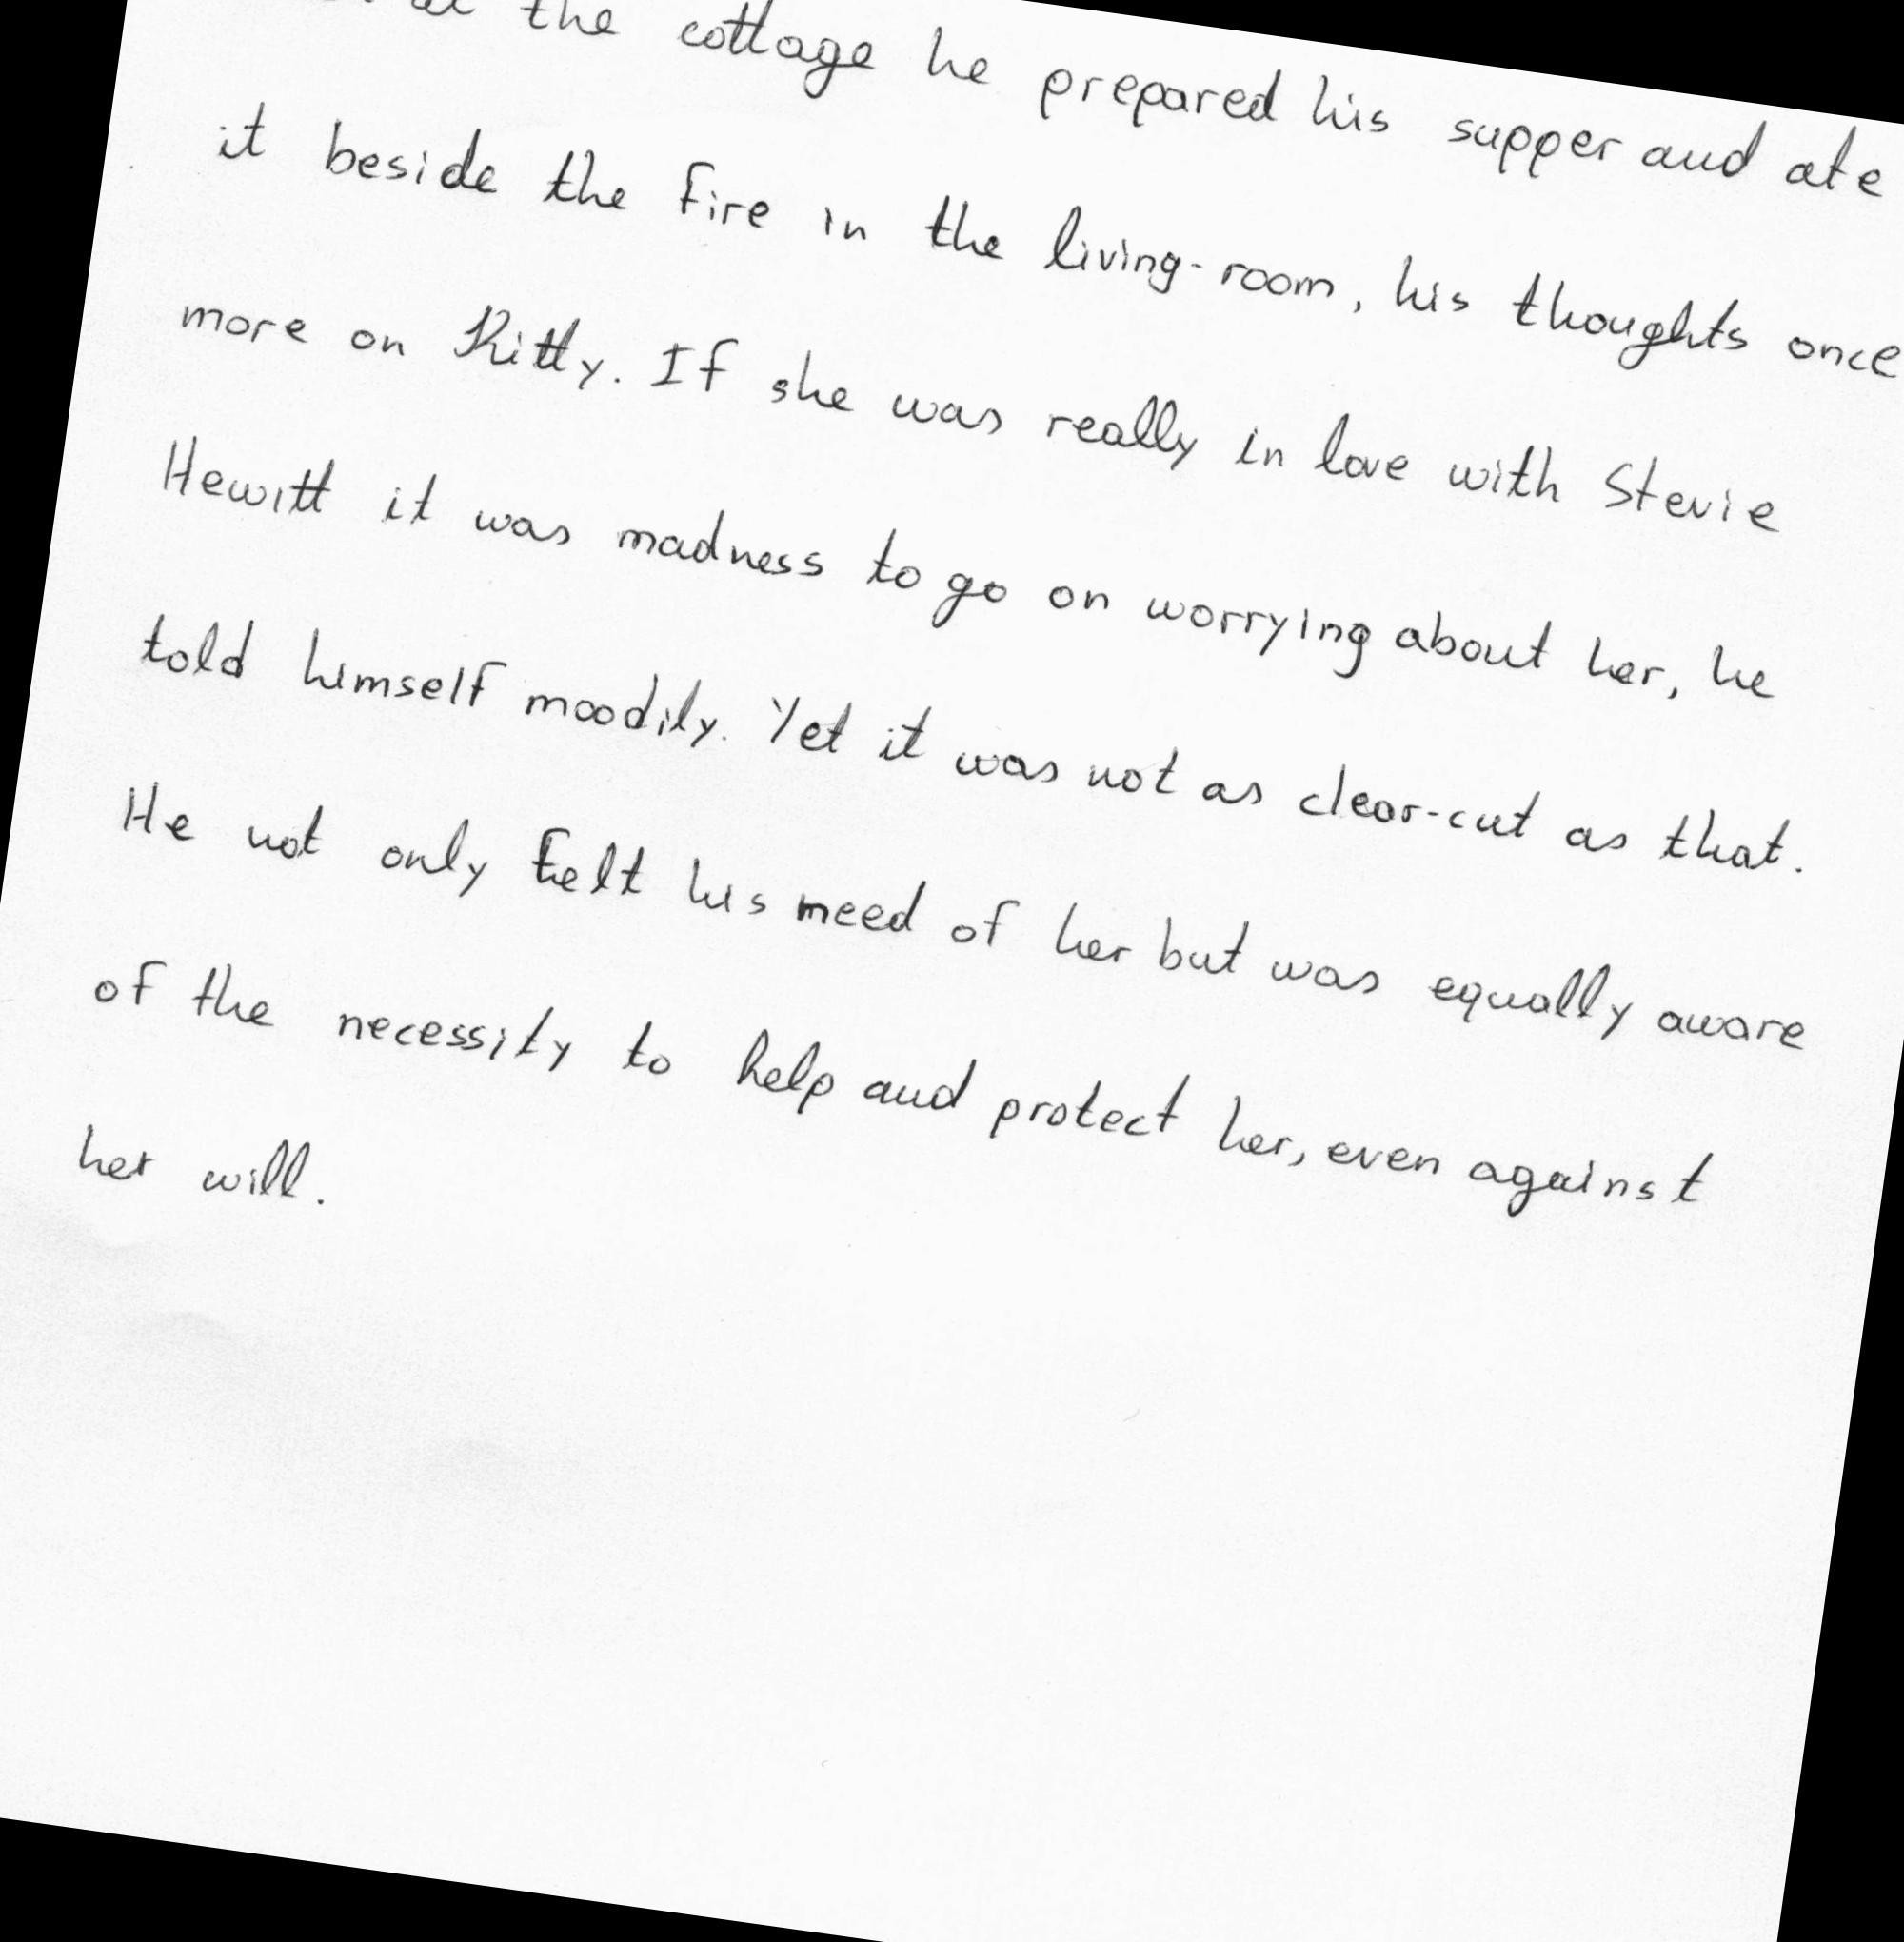 the cottage he prepared his supper and ate
it beside the fire in the living-room, his thoughts once
more on Kitty. If she was really in love with Stevie
Hewitt it was madness to go on worrying about her, he
told himself moodily. Yet it was not as clear-cut as that.
He not only felt his need of her but was equally aware
of the necessity to help and protect her, even against
her will.